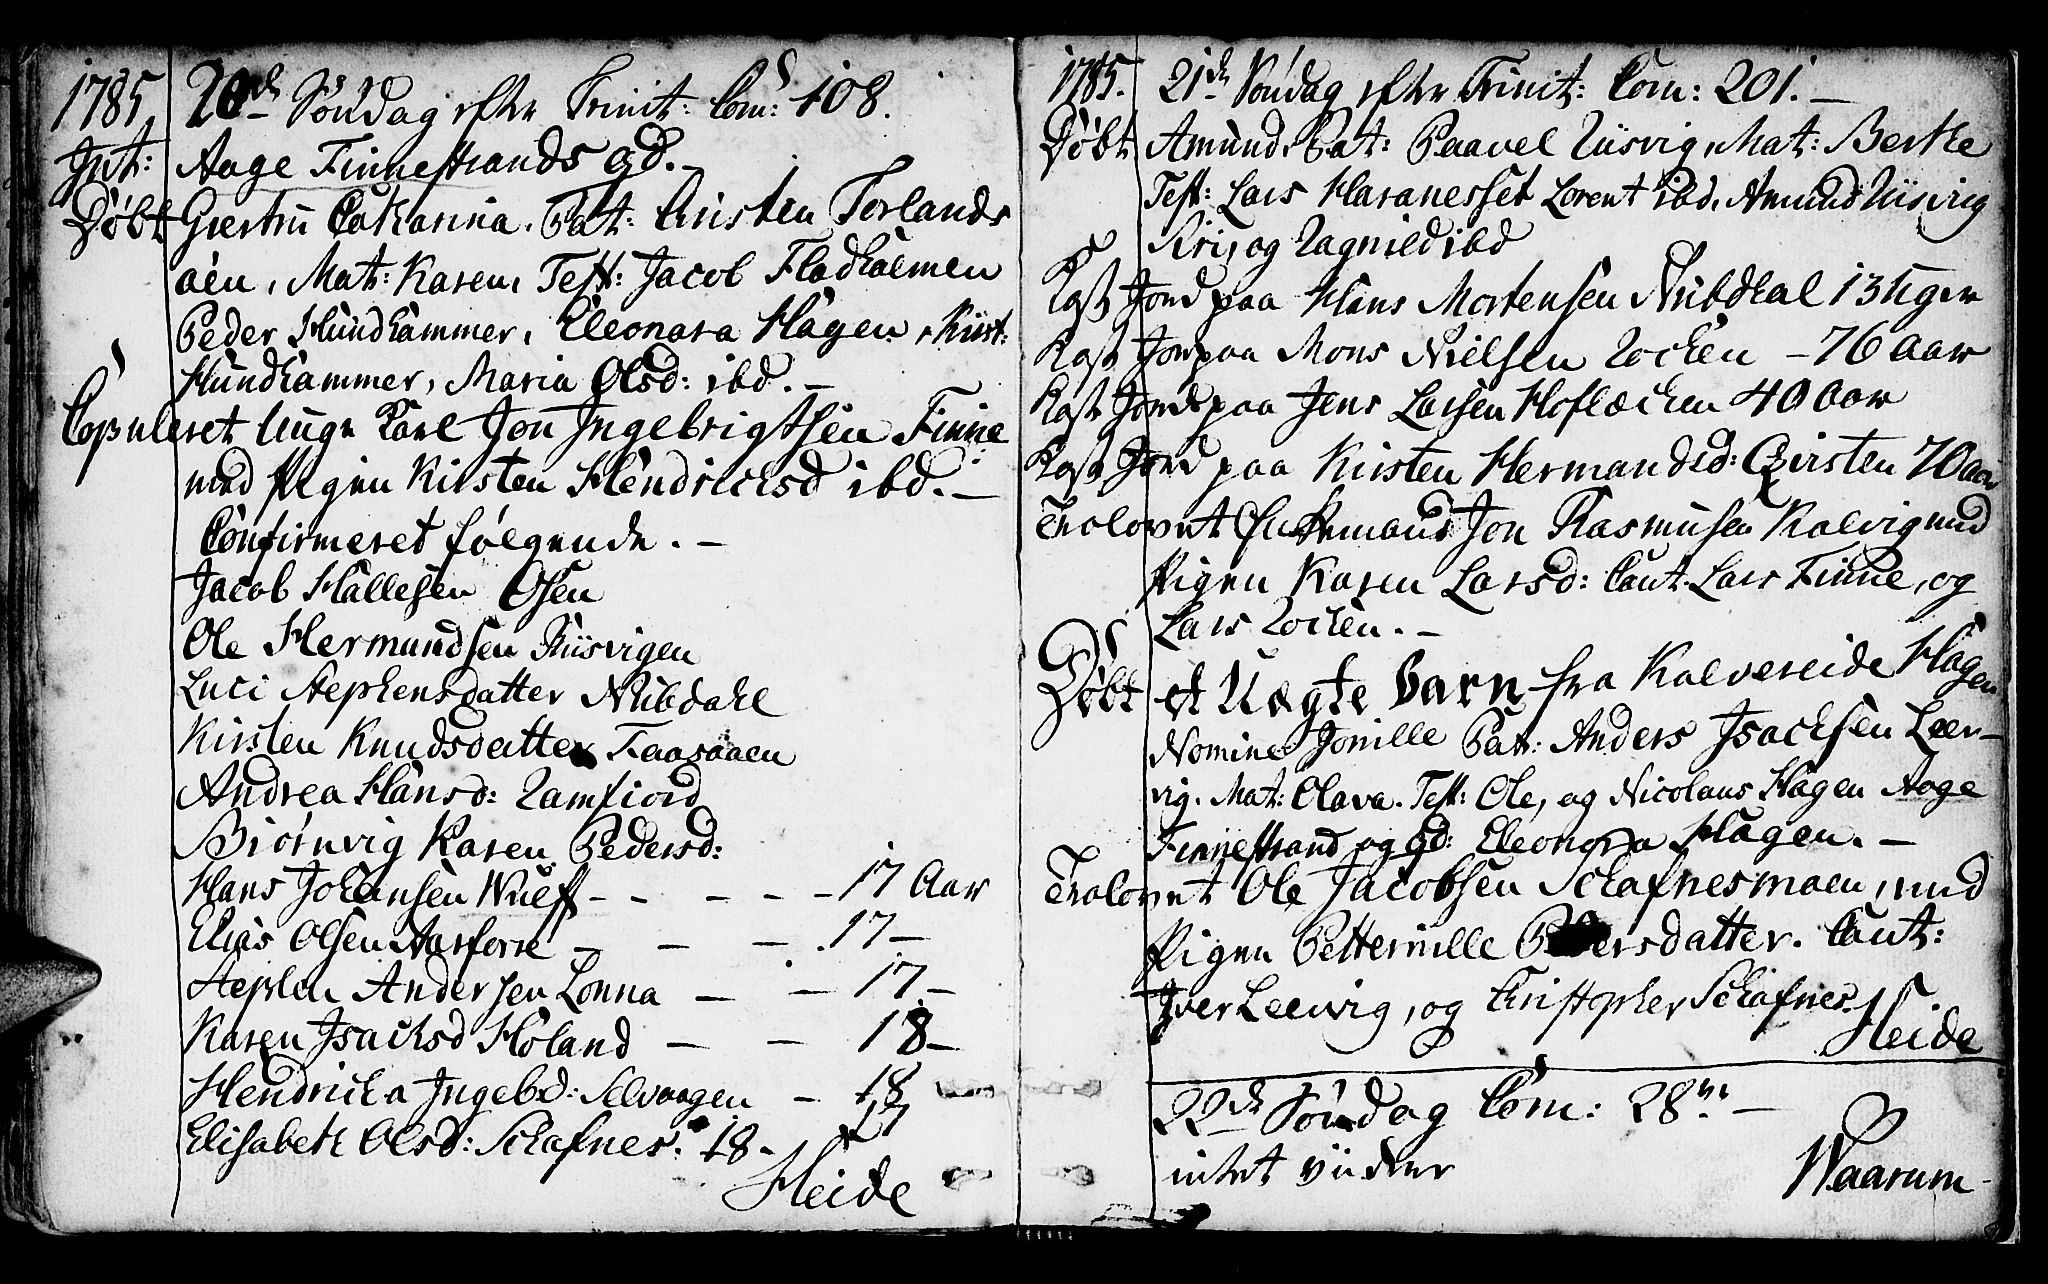 1785. 20de Søndag efter Trinit: Com: 108.
Int: Aage Finnestrands qd. –
Døbt Giertru Catharina. Pat: Christen Torlands
øien, Mat: Karen, Test: Jacob Fladholmen
Peder Hundhammer, Eleonara Hagen, Kirst:
Hundhammer, Maria Olsd: ibd. –
Copuleret Unge Karl Jon Ingebrigtsen Finne
med Pigen Kirsten Hendrichsd ibd. –
Confirmeret følgende. –
Jacob Hallesen Osen
Ole Hermundsen Riisvigen
Luci Stephensdatter Nubdahl
Kirsten Knudsdatter Faasaaen
Andrea Hansd: Ramfiord
Biørnvig Karen Pedersd:
Hans Johansen Wulff - - - - - 17 Aar
Elias Olsen Aarforre - - - 17 –
Stephen Andersen Lonna – – 17 –
Karen Isachsd Høland – – 18 –
Hendricha Ingebd: Selvaagen – 18
Elisabeth Olsd: Schafnes. 18 – 17
Heide
1785. 21de Søndag efter Trinit: Com: 201. –
Døbt Amund, Pat: Paavel Riisvig, Mat: Berthe
Test: Lars Haranesset Lorent ibd. Amund Riisvig
Siri, og Ragnild ibd
Kast Jord paa Hans Mortensen Nubdhal 13 Uger
Kast Jord paa Mons Nielsen Rochen – 76 Aar
Kast Jord paa Jens Larsen Hoflochen 40 Aar
Kast Jord paa Kirsten Hermandsd: Qvisten 70 aar
Trolovet Enkemand Jon Rasmusen Kalvig med
Pigen Karen Larsd: Caut. Lars Finne, og
Lars Rochen. –
Døbt et Uægte Barn fra Kalvereide Hagen
Nomine Jonille Pat: Anders Isachsen Leer-
vig. Mat: Olava. Test: Ole, og Nicolaus Hagen Aage
Finnestrand og qd: Eleonora Hagen. –
Trolovet Ole Jacobsen Schafnesmoen, med
Pigen Petternille Pedersdatter. Caut:
Iver Leervig, og Christopher Schafnes.
Heide
22de Søndag Com: 28. –
intet viidere
Waarum